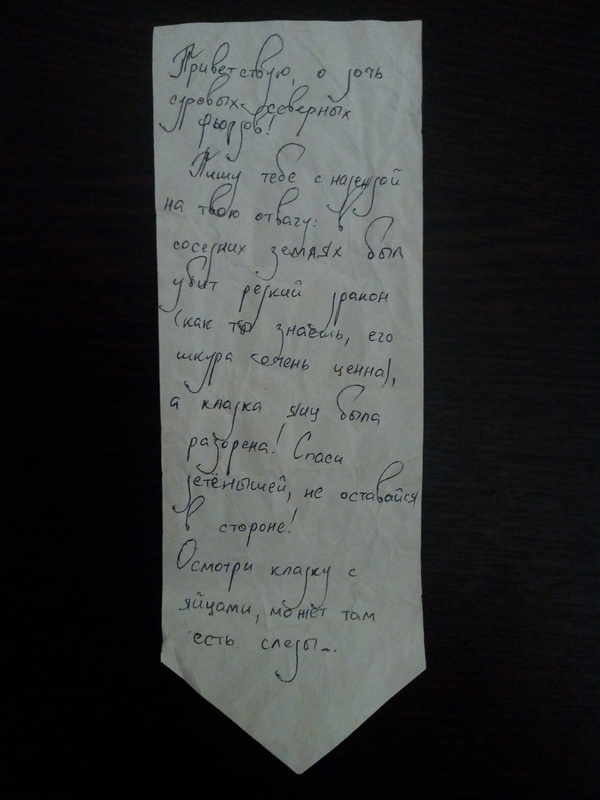 Приветствую, о дочь
суровых северных
фьордов!
Пишу тебе с надеждой
на твою отвагу: в
соседних землях был
убит редкий дракон
(как ты знаешь, его
шкура очень ценна),
а кладка яиц была
разорена! Спаси
детёнышей, не оставайся
в стороне!
Осмотри кладку с
яйцами, может там
есть следы...